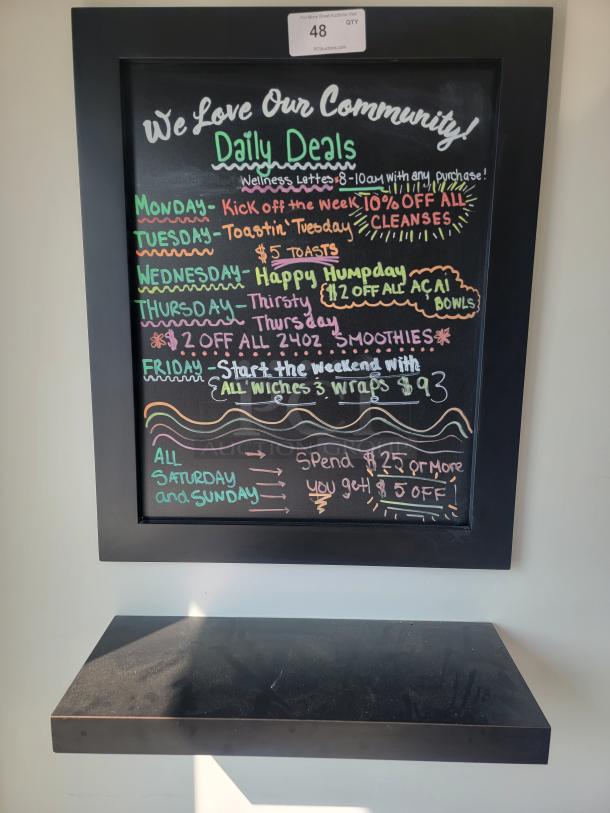 48
QTY
We Love Our Community!
Daily Deals
Wellness Lattes 8-10am with any purchase!
MONDAY- Kick off the week 10% OFF ALL
CLEANSES
TUESDAY- Toastin' Tuesday
$5 TOASTS
WEDNESDAY- Happy Humpday
$2 OFF ALL AÇAI
BOWLS
THURSDAY- Thirsty
Thursday
$2 OFF ALL 24OZ SMOOTHIES
FRIDAY - Start the weekend with
ALL 'WICHES & WRAPS $9
ALL
SATURDAY
and SUNDAY
Spend $25 or More
you get $5 OFF